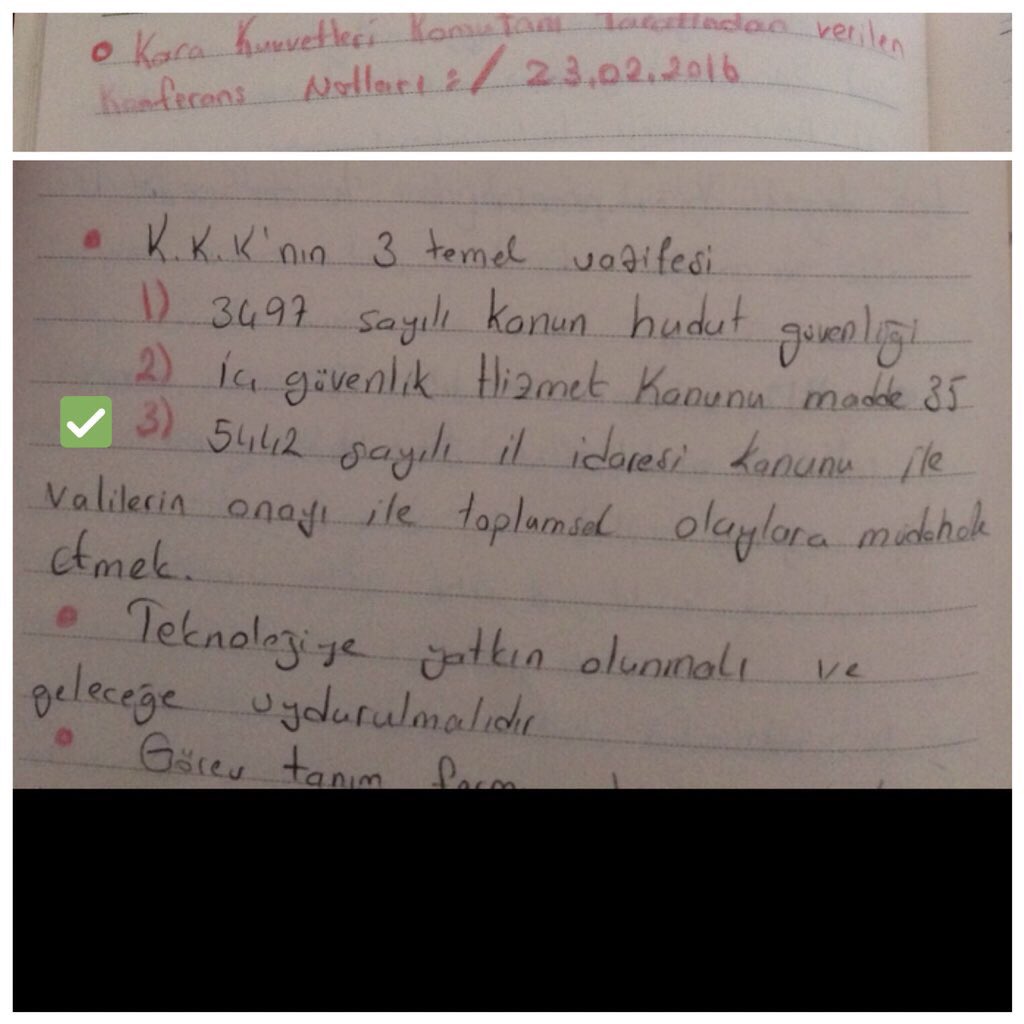 Kara Kuvvetleri Komutanı tarafından verilen
Konferans Notları : / 23.02.2016
K.K.K'nın 3 temel vazifesi
1) 3497 sayılı kanun hudut güvenliği
2) İç güvenlik Hizmet Kanunu madde 35
3) 5442 sayılı il idaresi kanunu ile
valilerin onayı ile toplumsal olaylara müdahale
etmek.
Teknolojiye yatkın olunmalı ve
geleceğe uydurulmalıdır
Görev tanım form